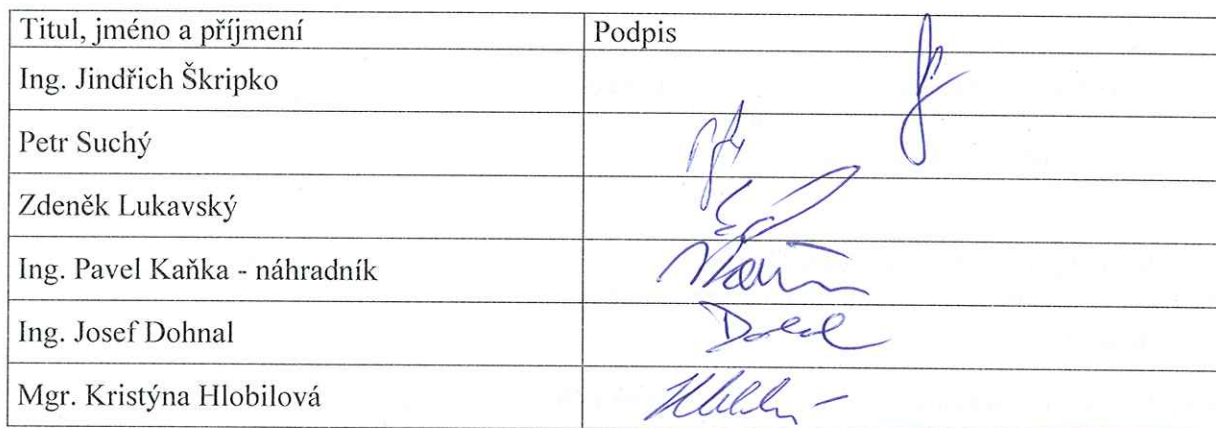 Titul, jméno a příjmení Podpis
Ing. Jindřich Škripko
Petr Suchý
Zdeněk Lukavský
Ing. Pavel Kaňka - náhradník
Ing. Josef Dohnal
Mgr. Kristýna Hlobilová